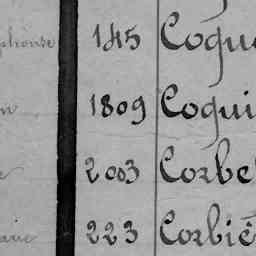 phonse 145 Coqu
1809 Coqui
2003 Corbe
223 Corbiè